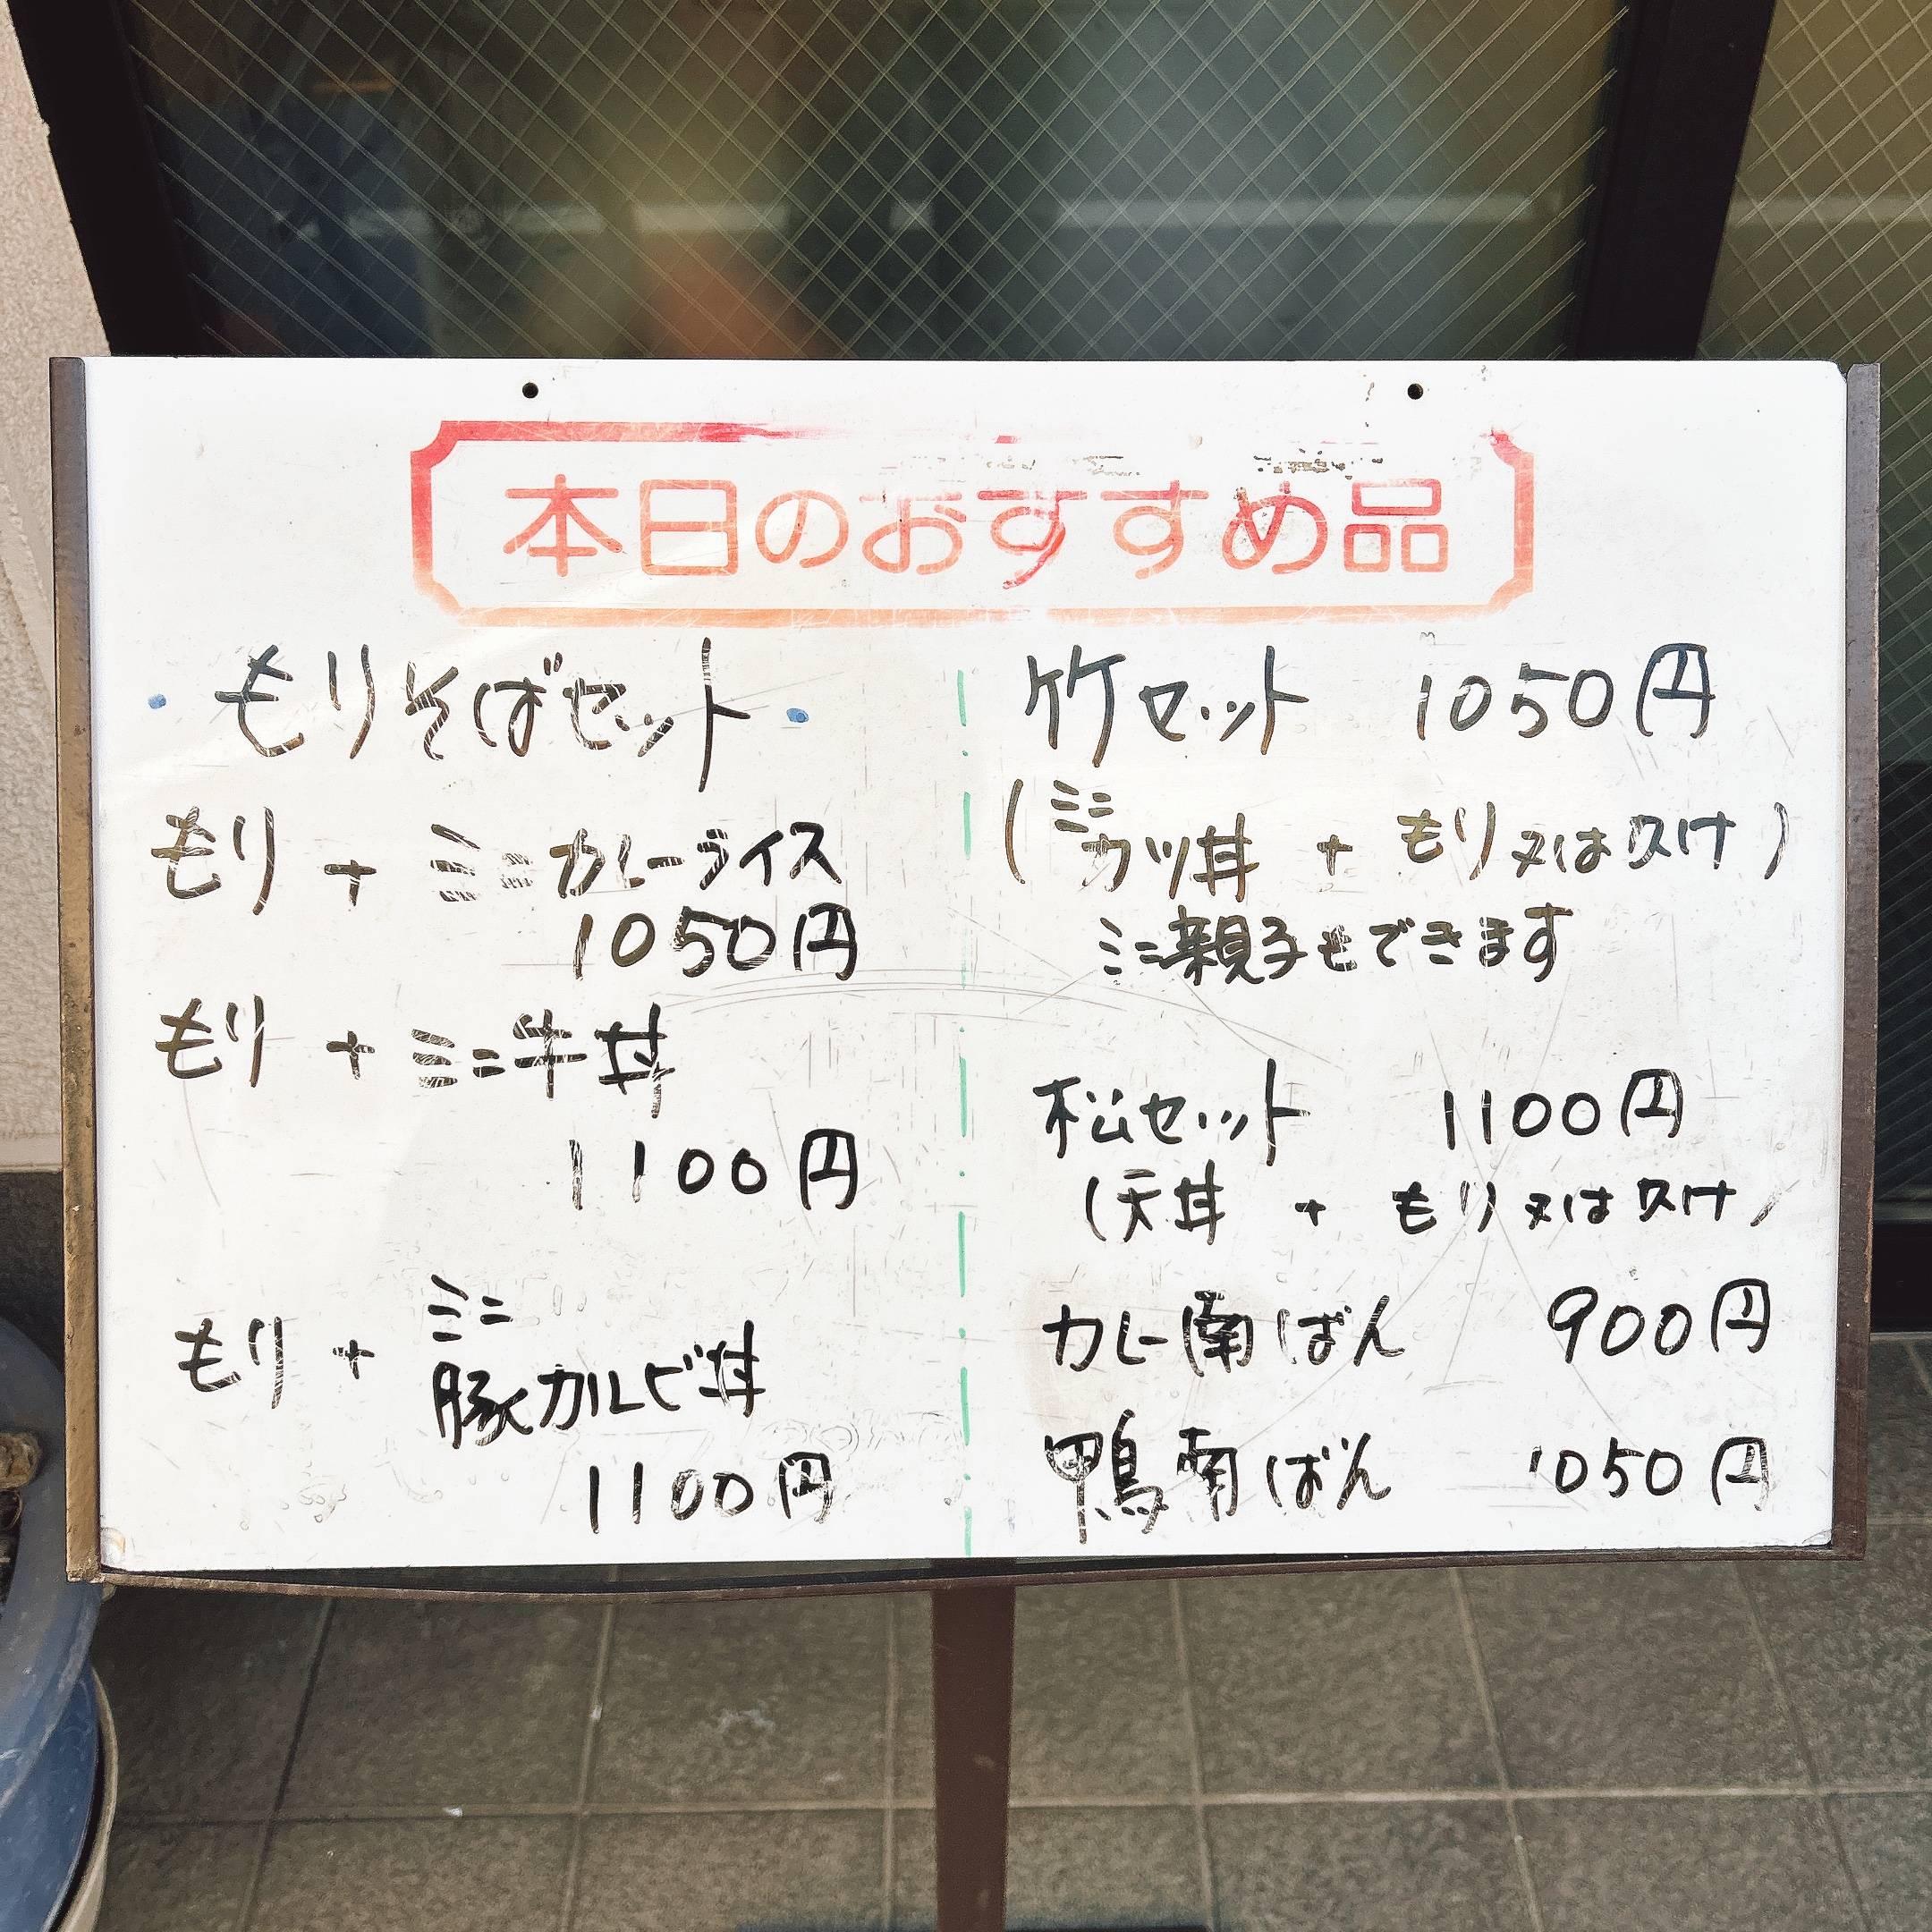 本日のおすすめ品
・もりそばセット・
もり + ミニカレーライス
1050円
もり + ミニ牛丼
1100円
もり + ミニ
豚カルビ丼
1100円
竹セット 1050円
(ミニカツ丼 + もり又はカけ)
ミニ親子もできます
松セット 1100円
(天丼 + もり又はカけ)
カレー南ばん 900円
鴨南ばん 1050円